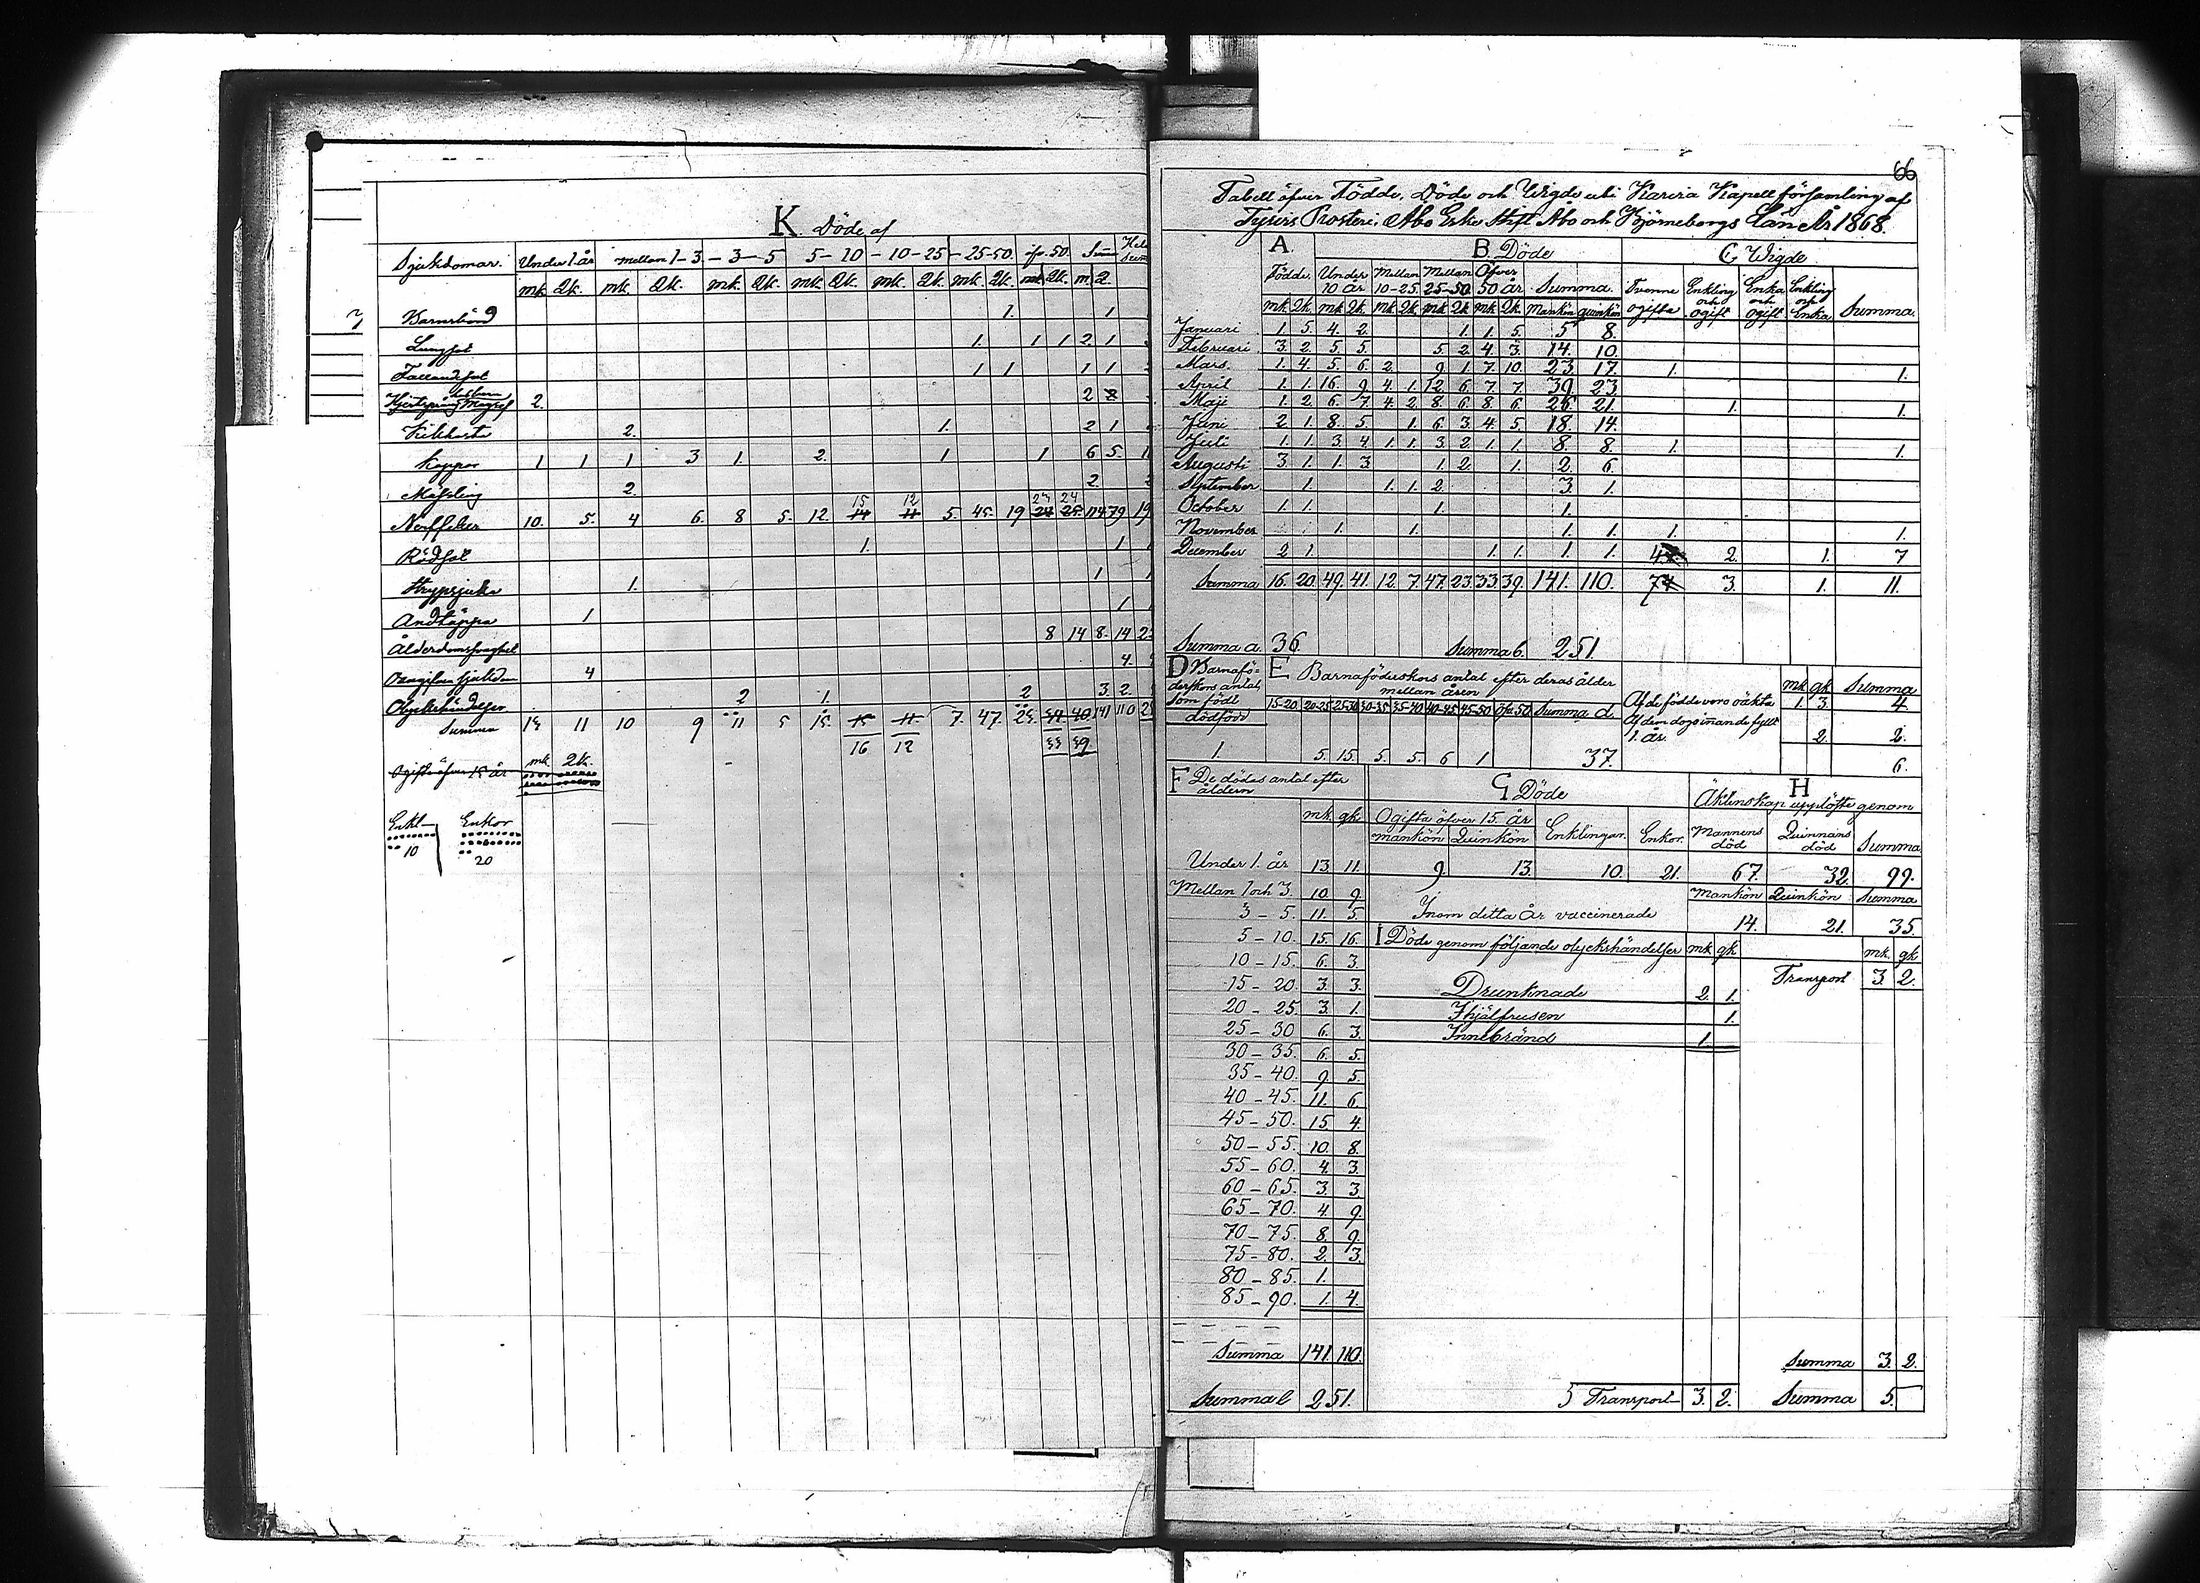 K. Döde af
Sjukdomar. Under 1 år mellan 1-3 - 3-5 5-10 - 10-25 - 25-50. öfv. 50. Sum
mk. Qk. mk. Qk. mk. Qk. mk. Qk. mk. Qk. mk. Qk. mk. Qk. m. Q.
Barnsbörd 1. 1
Lungsot 1. 1 1 2 1
Fallandesot 1 1 1 1
2. 2
Kikhosta 2. 1. 2 1
Koppor 1 1 1 3 1. 2. 1 1 6 5.
Mässling 2. 2.
Nerffeber 10. 5. 4 6. 8 5. 12. 15 12 5. 45. 19 24 114 79
Rödsot 1. 1
Strypsjuka 1. 1
Andtäppa 1 1
Ålderdomssvaghet 8 14 8. 14
Oangifven sjukdom 4 4.
Olyckshändelser 2 1. 2 3. 2.
Summa 13 11 10 9 11 5 15. 7. 47. 23. 141 110
16 12 33 39
mk. Qk.
Ogifta öfver 15 år
Enkl Enkor
10 20
66
Tabell öfver Födde, Döde och Wigde uti Karvia Kapell församling af
Tyrvis Prosteri, Åbo Erke Stift Åbo och Björneborgs Län År 1868.
A. B. Döde C. Wigde
Födde. Under 10 år Mellan 10-25. Mellan 25-50. Öfver 50 år. Summa. Tvenne ogifta Enkling och ogift Enka och ogift Enkling och Enka Summa.
mk Qk mk Qk mk Qk mk Qk mk Qk mankön quinkön
Januari 1. 5. 4. 2. 1. 1. 5. 5 8.
Februari 3. 2. 5. 5. 5. 2. 4. 3. 14. 10.
Mars 1. 4. 5. 6. 2. 9. 1. 7. 10. 23. 17. 1. 1.
April 1. 1. 16. 9. 4. 1. 12. 6. 7. 7. 39. 23.
Maji 1. 2. 6. 7. 4. 2. 8. 6. 8. 6. 26. 21. 1. 1.
Juni 2. 1. 8. 5. 1. 6. 3. 4. 5. 18. 14.
Juli 1. 1. 3. 4. 1. 1. 3. 2. 1. 1. 8. 8. 1. 1.
Augusti 3. 1. 1. 3. 1. 2. 1. 2. 6.
September 1. 1. 1. 2. 3. 1.
October 1. 1. 1. 1.
November 1. 1. 1. 1. 1. 1.
December 2. 1. 1. 1. 1. 1. 4 2. 1. 7
Summa 16. 20. 49. 41. 12. 7. 47. 23. 33. 39. 141. 110. 7 3. 1. 11.
Summa a. 36. Summa b. 251.
D Barnaföderskors antal som födt dödfödd
1.
E Barnaföderskors antal efter deras ålder
mellan åren
15-20. 20-25 25-30 30-35 35-40 40-45 45-50 öfv. 50. Summa d.
5. 15. 5. 5. 6 1 37.
mk. qk. Summa
Af de födde voro oäkta 1. 3. 4
Af dem dogo innan de fyllt
1. år. 2. 2.
6.
F De dödas antal efter
åldern
mk. qk.
Under 1. år 13. 11.
Mellan 1 och 3. 10. 9.
3 - 5. 11. 5.
5 - 10. 15. 16.
10 - 15. 6. 3.
15 - 20. 3. 3.
20 - 25. 3. 1.
25 - 30 6. 3.
30 - 35. 6. 5.
35 - 40. 9. 5.
40 - 45. 11. 6.
45 - 50. 15. 4.
50 - 55. 10. 8.
55 - 60. 4. 3.
60 - 65. 3. 3.
65 - 70. 4. 9.
70 - 75. 8. 9.
75 - 80. 2. 3.
80 - 85. 1.
85 - 90. 1. 4.
Summa 141. 110.
Summa b 251.
G Döde
Ogifta öfver 15. år Enklingar. Enkor.
mankön Quinkön
9. 13. 10. 21.
H
Äktenskap upplöste genom
Mannens död Quinnans död Summa
67. 32. 99.
mankön Quinkön Summa
Inom detta år vaccinerade 14. 21. 35.
I Döde genom följande olyckshändelser mk. qk mk. qk
Transport 3. 2.
Drunknade 2. 1.
Ihjälfrusen 1.
Innebränd 1.
Summa 3. 2.
5 Transport 3. 2. Summa 5.